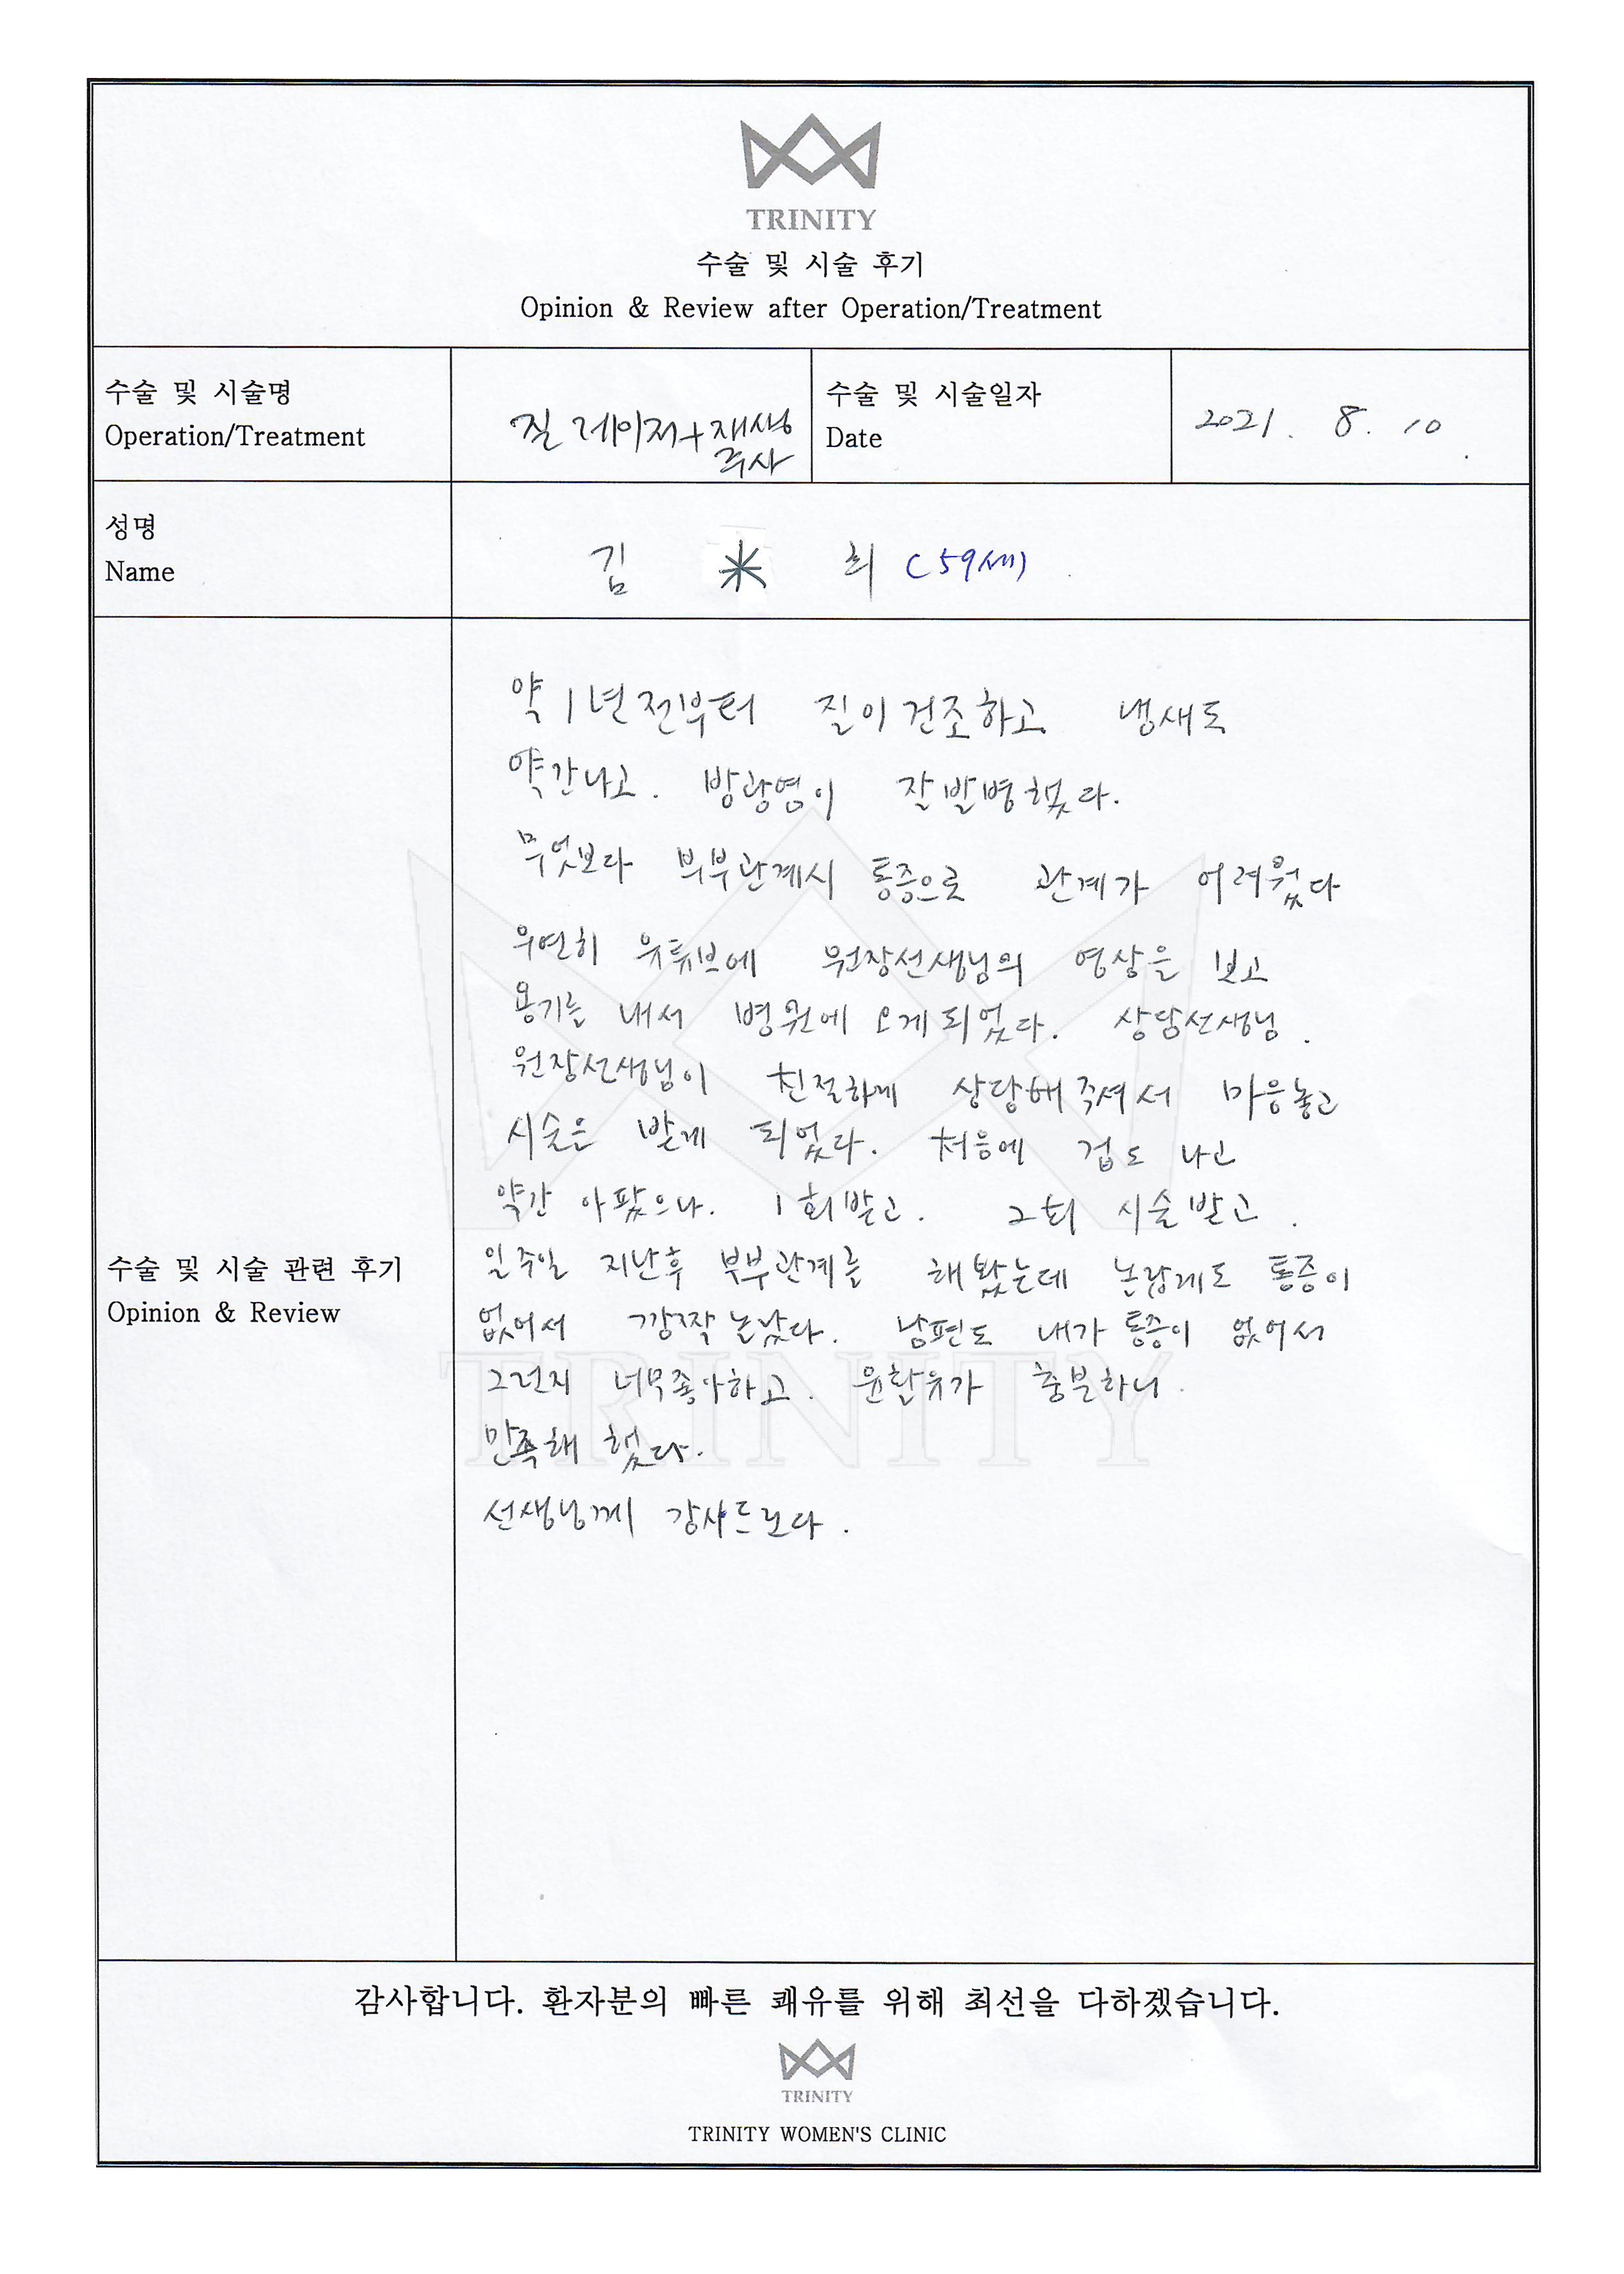 TRINITY
수술 및 시술 후기
Opinion & Review after Operation/Treatment
수술 및 시술명
Operation/Treatment
질 레이저+재생
주사
수술 및 시술일자
Date
2021. 8. 10.
성명
Name
김 * 희 (59세)
약 1년전부터 질이 건조하고 냉새도
약간나고. 방광염이 잘발병했다.
무엇보다 부부관계시 통증으로 관계가 어려웠다
우연히 유튜브에 원장선생님의 영상을 보고
용기를 내서 병원에 오게되었다. 상담선생님.
원장선생님이 친절하게 상담해주셔서 마음놓고
시술은 받게 되었다. 처음에 겁도 나고
약간 아팠으나. 1회받고. 2회 시술받고.
일주일 지난후 부부관계를 해봤는데 논랍게도 통증이
없어서 깜짝놀났다. 남편도 내가 통증이 없어서
그런지 너무좋아하고. 윤활유가 충분하니.
만족해 했다.
선생님께 감사드린다.
수술 및 시술 관련 후기
Opinion & Review
TRINITY
감사합니다. 환자분의 빠른 쾌유를 위해 최선을 다하겠습니다.
TRINITY
TRINITY WOMEN'S CLINIC